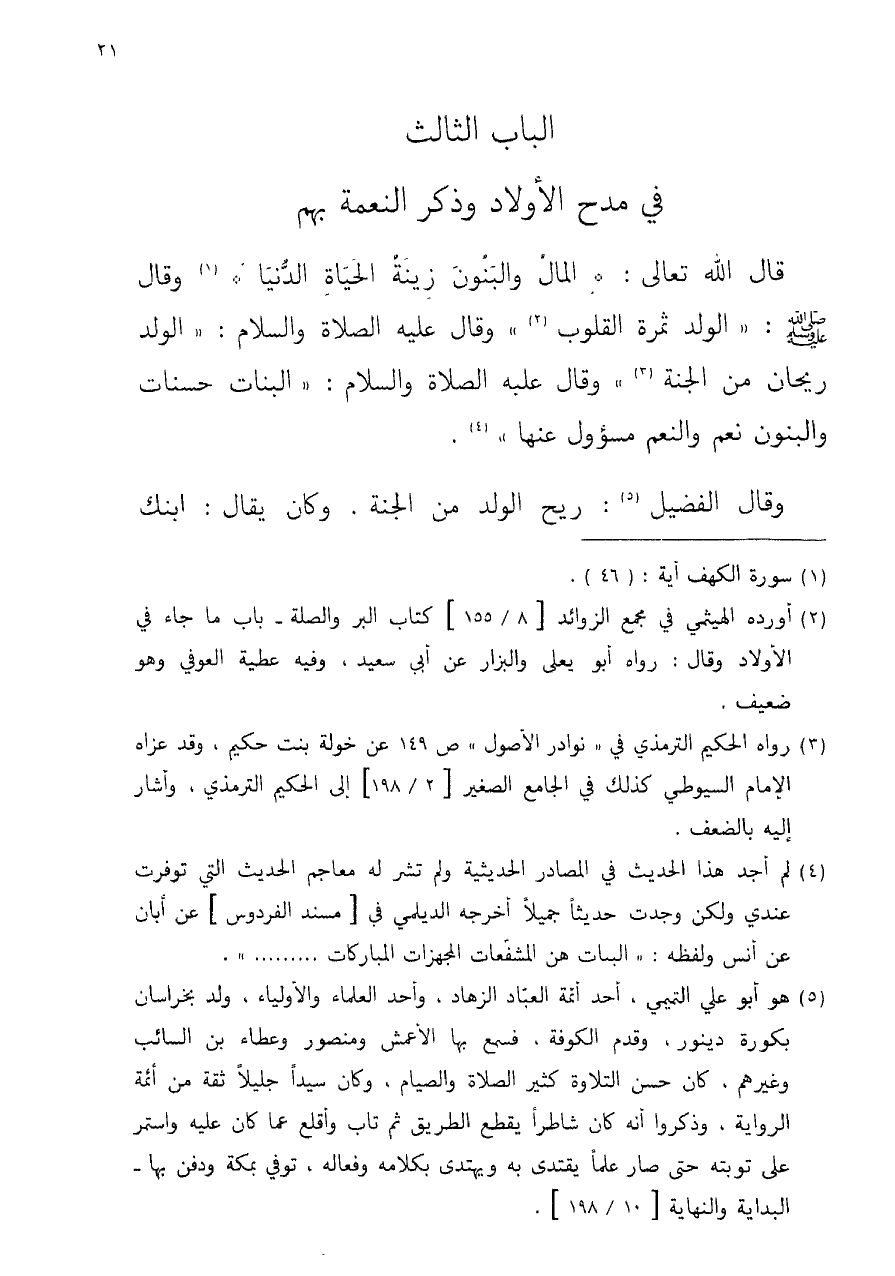 ٢١
الباب الثالث
في مدح الأولاد وذكر النعمة بهم
قال الله تعالى : ﴿ المَالُ والبَنُونَ زِينَةُ الحَيَاةِ الدُّنيَا ﴾ (١) وقال
ﷺ : « الولد ثمرة القلوب (٢) » وقال عليه الصلاة والسلام : « الولد
ريحان من الجنة (٣) » وقال عليه الصلاة والسلام : « البنات حسنات
والبنون نعم والنعم مسؤول عنها » (٤) .
وقال الفضيل (٥) : ريح الولد من الجنة . وكان يقال : ابنك
(١) سورة الكهف آية : ( ٤٦ ) .
(٢) أورده الهيثمي في مجمع الزوائد [ ٨ / ١٥٥ ] كتاب البر والصلة ـ باب ما جاء في
الأولاد وقال : رواه أبو يعلى والبزار عن أبي سعيد ، وفيه عطية العوفي وهو
ضعيف .
(٣) رواه الحكيم الترمذي في « نوادر الأصول » ص ١٤٩ عن خولة بنت حكيم ، وقد عزاه
الإمام السيوطي كذلك في الجامع الصغير [ ٢ / ١٩٨ ] إلى الحكيم الترمذي ، وأشار
إليه بالضعف .
(٤) لم أجد هذا الحديث في المصادر الحديثية ولم تشر له معاجم الحديث التي توفرت
عندي ولكن وجدت حديثاً جميلاً أخرجه الديلمي في [ مسند الفردوس ] عن أبان
عن أنس ولفظه : « البنات هن المشفّعات المجهزات المباركات ......... » .
(٥) هو أبو علي التميمي ، أحد أئمة العبّاد الزهاد ، وأحد العلماء والأولياء ، ولد بخراسان
بكورة دينور ، وقدم الكوفة ، فسمع بها الأعمش ومنصور وعطاء بن السائب
وغيرهم ، كان حسن التلاوة كثير الصلاة والصيام ، وكان سيداً جليلاً ثقة من أئمة
الرواية ، وذكروا أنه كان شاطراً يقطع الطريق ثم تاب وأقلع عما كان عليه واستمر
على توبته حتى صار علماً يقتدى به ويهتدى بكلامه وفعاله ، توفي بمكة ودفن بها ـ
البداية والنهاية [ ١٠ / ١٩٨ ] .